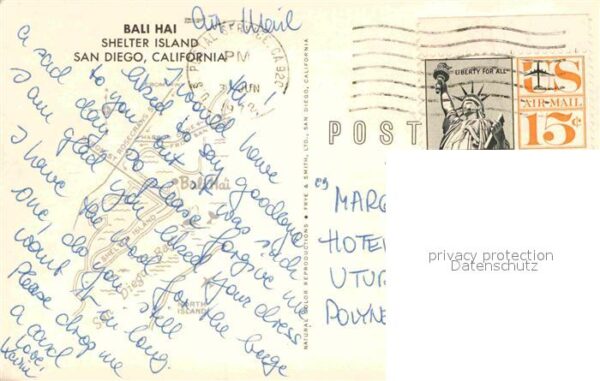 Air-Mail
BALI HAI
SHELTER ISLAND
SAN DIEGO, CALIFORNIA
PM
JUN
Hi!
I would have
liked to say goodbye
to you but I was sick
a day so please forgive me
I am glad you liked your dress
I have the look for the beige
one, do you still
want it in long.
Please drop me
a card
Love,
Bali Hai
SHELTER ISLAND
San Diego Bay
NORTH ISLAND
NATURAL COLOR REPRODUCTIONS • FRYE & SMITH, LTD., SAN DIEGO, CALIFORNIA
POST
LIBERTY FOR ALL
US
AIR MAIL
15¢
MARG
HOTE
UTUR
POLYNE
privacy protection
Datenschutz